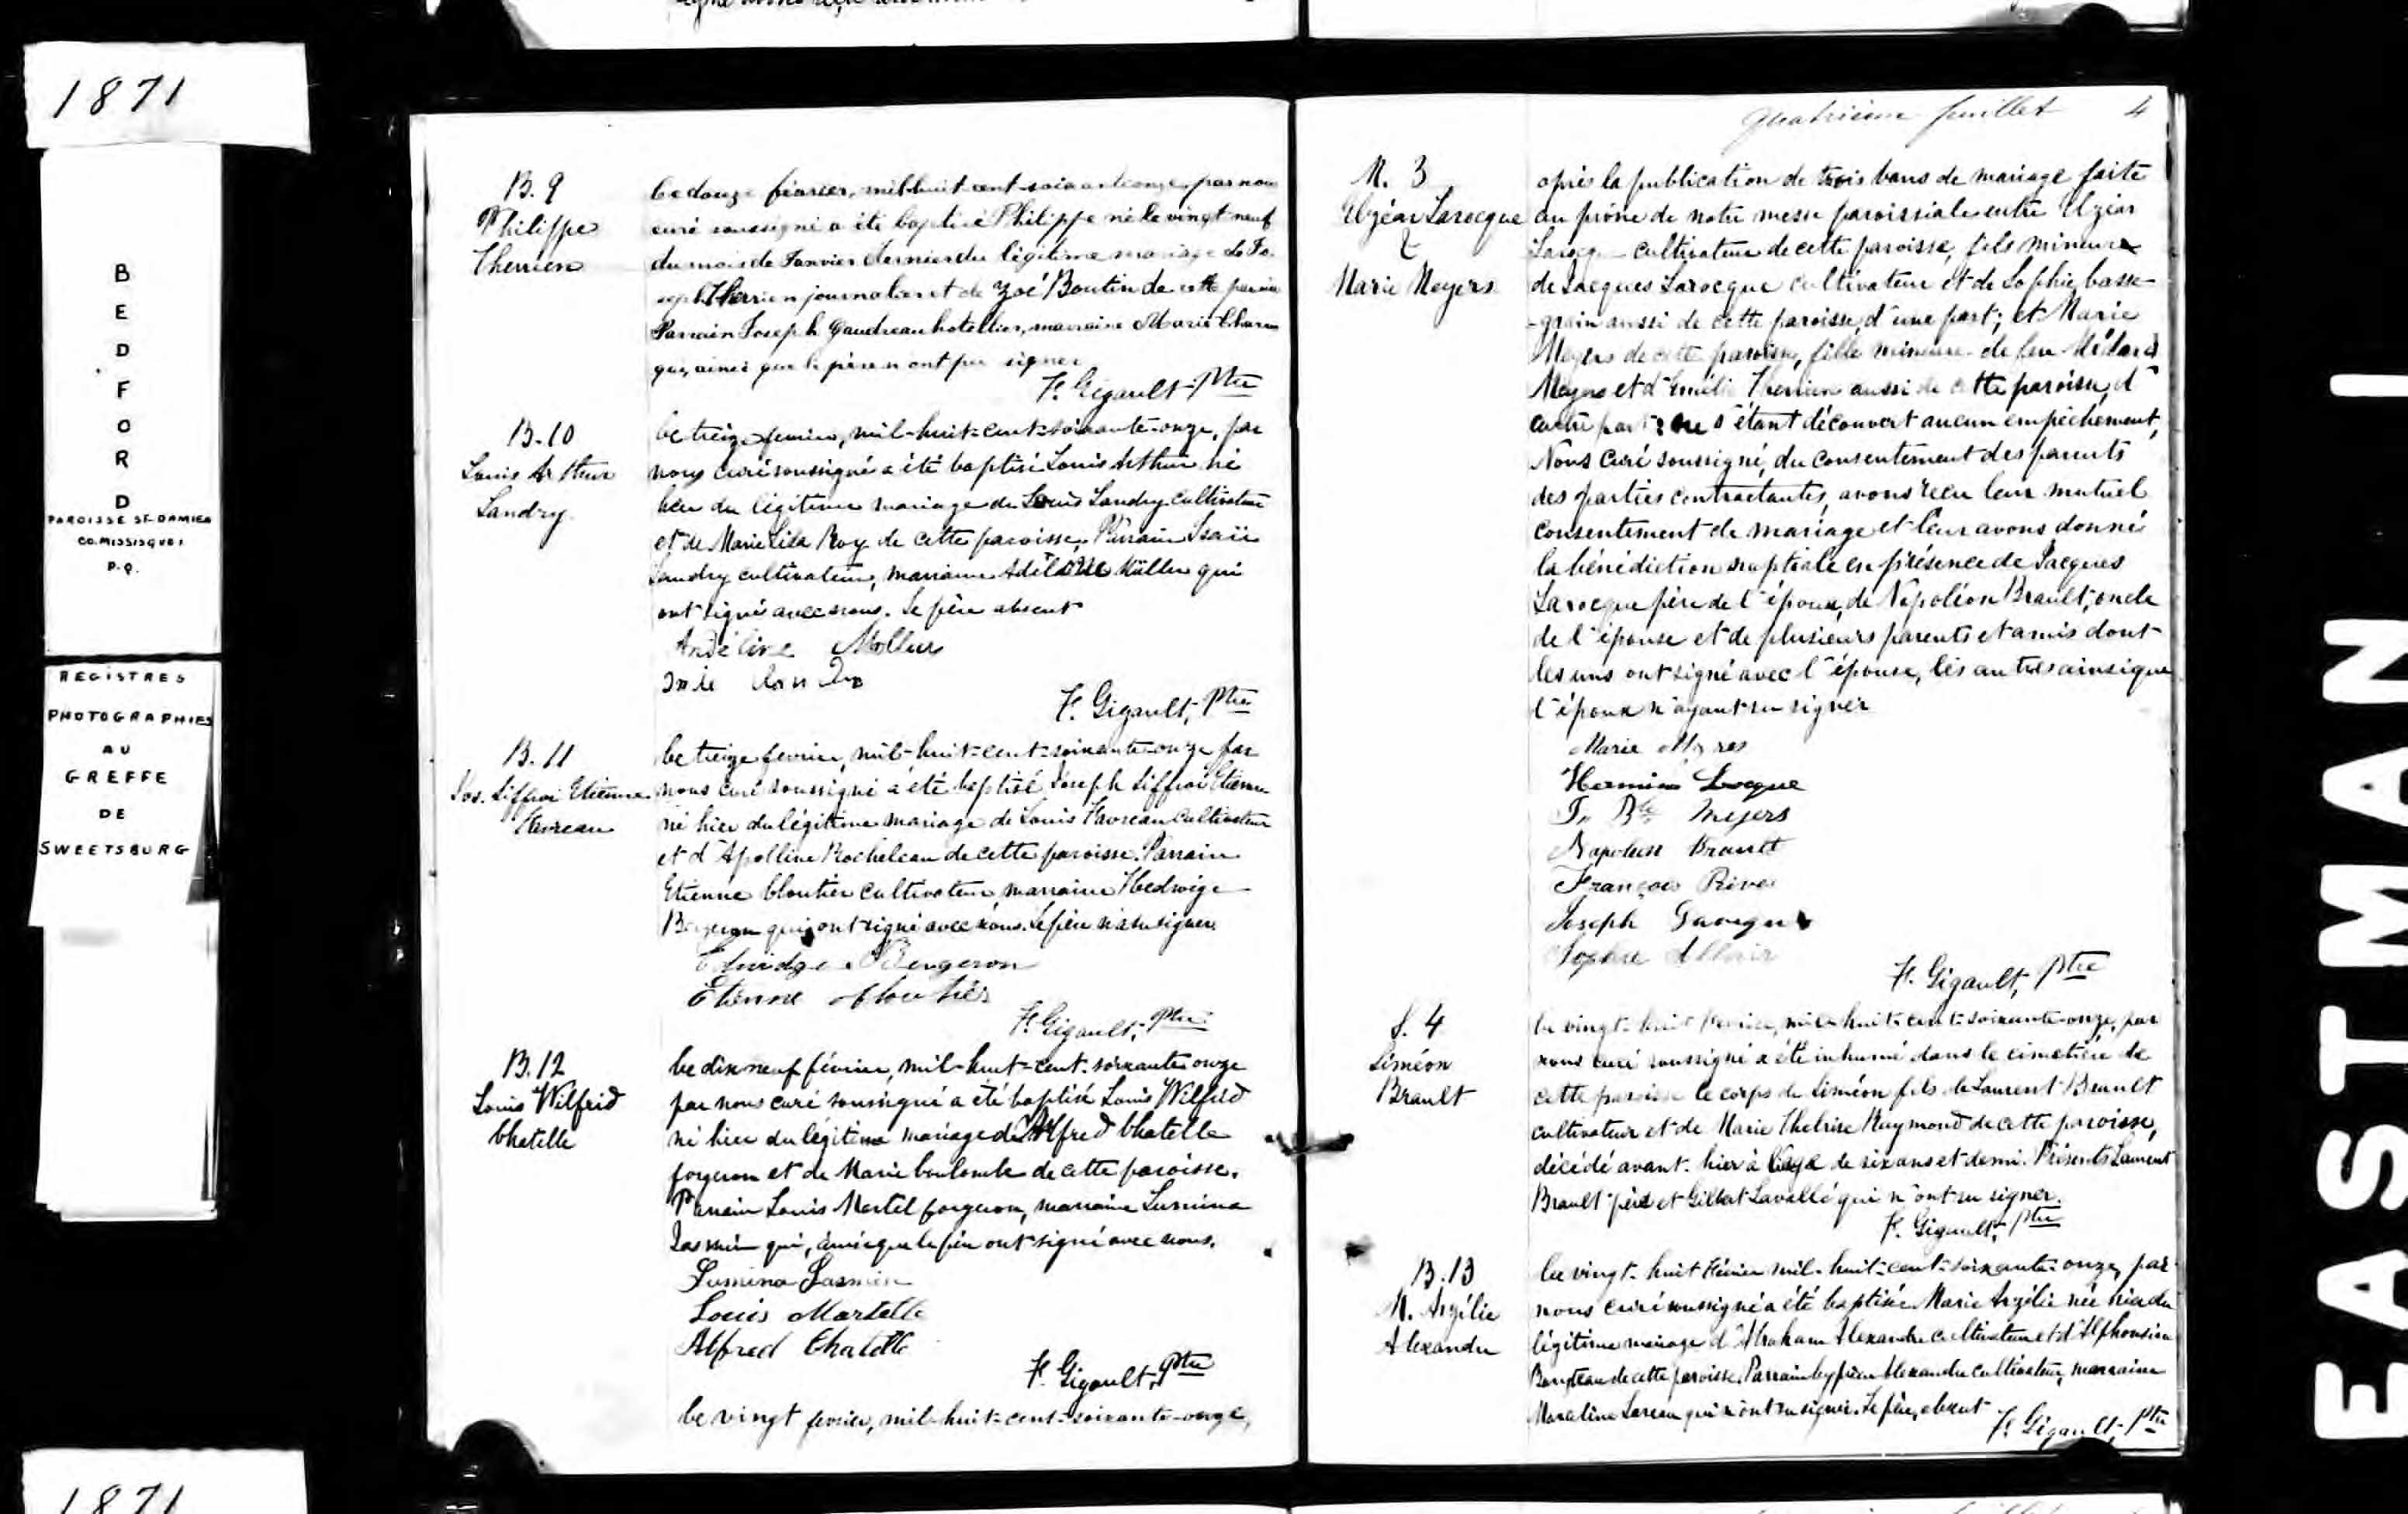 1871
BEDFORD
PAROISSE ST-DAMIEN
CO. MISSISQUOI
P.Q.
REGISTRES
PHOTOGRAPHIES
AU
GREFFE
DE
SWEETSBURG
1871
B. 9
Philippe
Therrien
Le douze février, mil-huit-cent-soixante-onze, par nous
curé soussigné a été baptisé Philippe né le vingt neuf
du mois de Janvier dernier du légitime mariage de Jo-
seph Therrien journalier et de Zoé Boutin de cette paroisse
Parrain Joseph Gaudreau hotellier, marraine Marie
qui, ainsi que le père n'ont pu signer
F. Gigault Ptre
B. 10
Louis Arthur
Landry
Le treize fevrier, mil-huit-cent-soixante-onze, par
nous curé soussigné a été baptisé Louis Arthur né
hier du légitime mariage de Louis Landry cultivateur
et de Marie Lila Roy de cette paroisse, Parrain Isaïe
Landry cultivateur, marraine Adéline Muller qui
ont signé avec nous. Le père absent
Andélive Molleur
F. Gigault, Ptre
B. 11
Jos. Siffroi Etienne
Favreau
Le treize fevrier, mil-huit-cent-soixante-onze par
nous curé soussigné a été baptisé Joseph Siffroi Etienne
né hier du légitime mariage de Louis Favreau cultivateur
et d'Apolline Rocheleau de cette paroisse. Parrain
Etienne Cloutier cultivateur, marraine Hedwige
Bergeron qui ont signé avec nous. Le père n'a su signer.
Edwidge Bergeron
Etienne Cloutier
F. Gigault, Ptre
B. 12
Louis Wilfrid
Chatelle
Le dix neuf février, mil-huit-cent-soixante onze
par nous curé soussigné a été baptisé Louis Wilfrid
né hier du légitime mariage de Alfred Chatelle
forgeron et de Marie Coulombe de cette paroisse.
Parrain Louis Martel forgeron, marraine Lumina
Jasmin qui, ainsi que le père ont signé avec nous.
Lumina Jasmin
Louis Martelle
Alfred Chatelle
F. Gigault, Ptre
Le vingt fevrier, mil-huit-cent-soixante-onze,
Quatrième feuillet 4
M. 3
Elzéar Larocque
&
Marie Meyers
après la publication de trois bans de mariage faite
au prône de notre messe paroissiale entre Elzéar
Larocq cultivateur de cette paroisse, fils mineur
de Jacques Larocque cultivateur et de Sophie Casse-
-grain aussi de cette paroisse, d'une part; et Marie
Meyers de cette paroisse, fille mineure de feu Médard
Meyers et d'Emélie Therrien aussi de cette paroisse, d'
autre part; ne s'étant découvert aucun empêchement,
Nous curé soussigné, du consentement des parents
des parties contractantes, avons reçu leur mutuel
consentement de mariage et leur avons donné
la bénédiction nuptiale en présence de Jacques
Larocque père de l'époux, de Napoléon Brault, oncle
de l'épouse et de plusieurs parents et amis dont
les uns ont signé avec l'épouse, les autres ainsi que
l'époux n'ayant su signer
Marie
Hermine Locque
Jn Bte Meyers
Napoleon Brault
François
Joseph
Sophie
F. Gigault, Ptre
S. 4
Siméon
Brault
Le vingt-huit Fevrier, mil-huit-cent-soixante-onze, par
nous curé soussigné a été inhumé dans le cimetière de
cette paroisse le corps de Siméon fils de Laurent Brault
cultivateur et de Marie Thelvise Raymond de cette paroisse,
décédé avant-hier à l'age de six ans et demi. Présents Laurent
Brault père et Gilbert Lavallé qui n'ont su signer.
F. Gigault, Ptre
B. 13
M. Arzélie
Alexandre
Le vingt-huit Février mil-huit-cent-soixante-onze, par
nous curé soussigné a été baptisée Marie Arzélie née hier du
légitime mariage d'Abraham Alexandre cultivateur et d'Alphonsine
de cette paroisse. Parrain Alexandre cultivateur, marraine
Marceline Lareau qui n'ont su signer. Le père, absent
F. Gigault, Ptre
EASTMAN